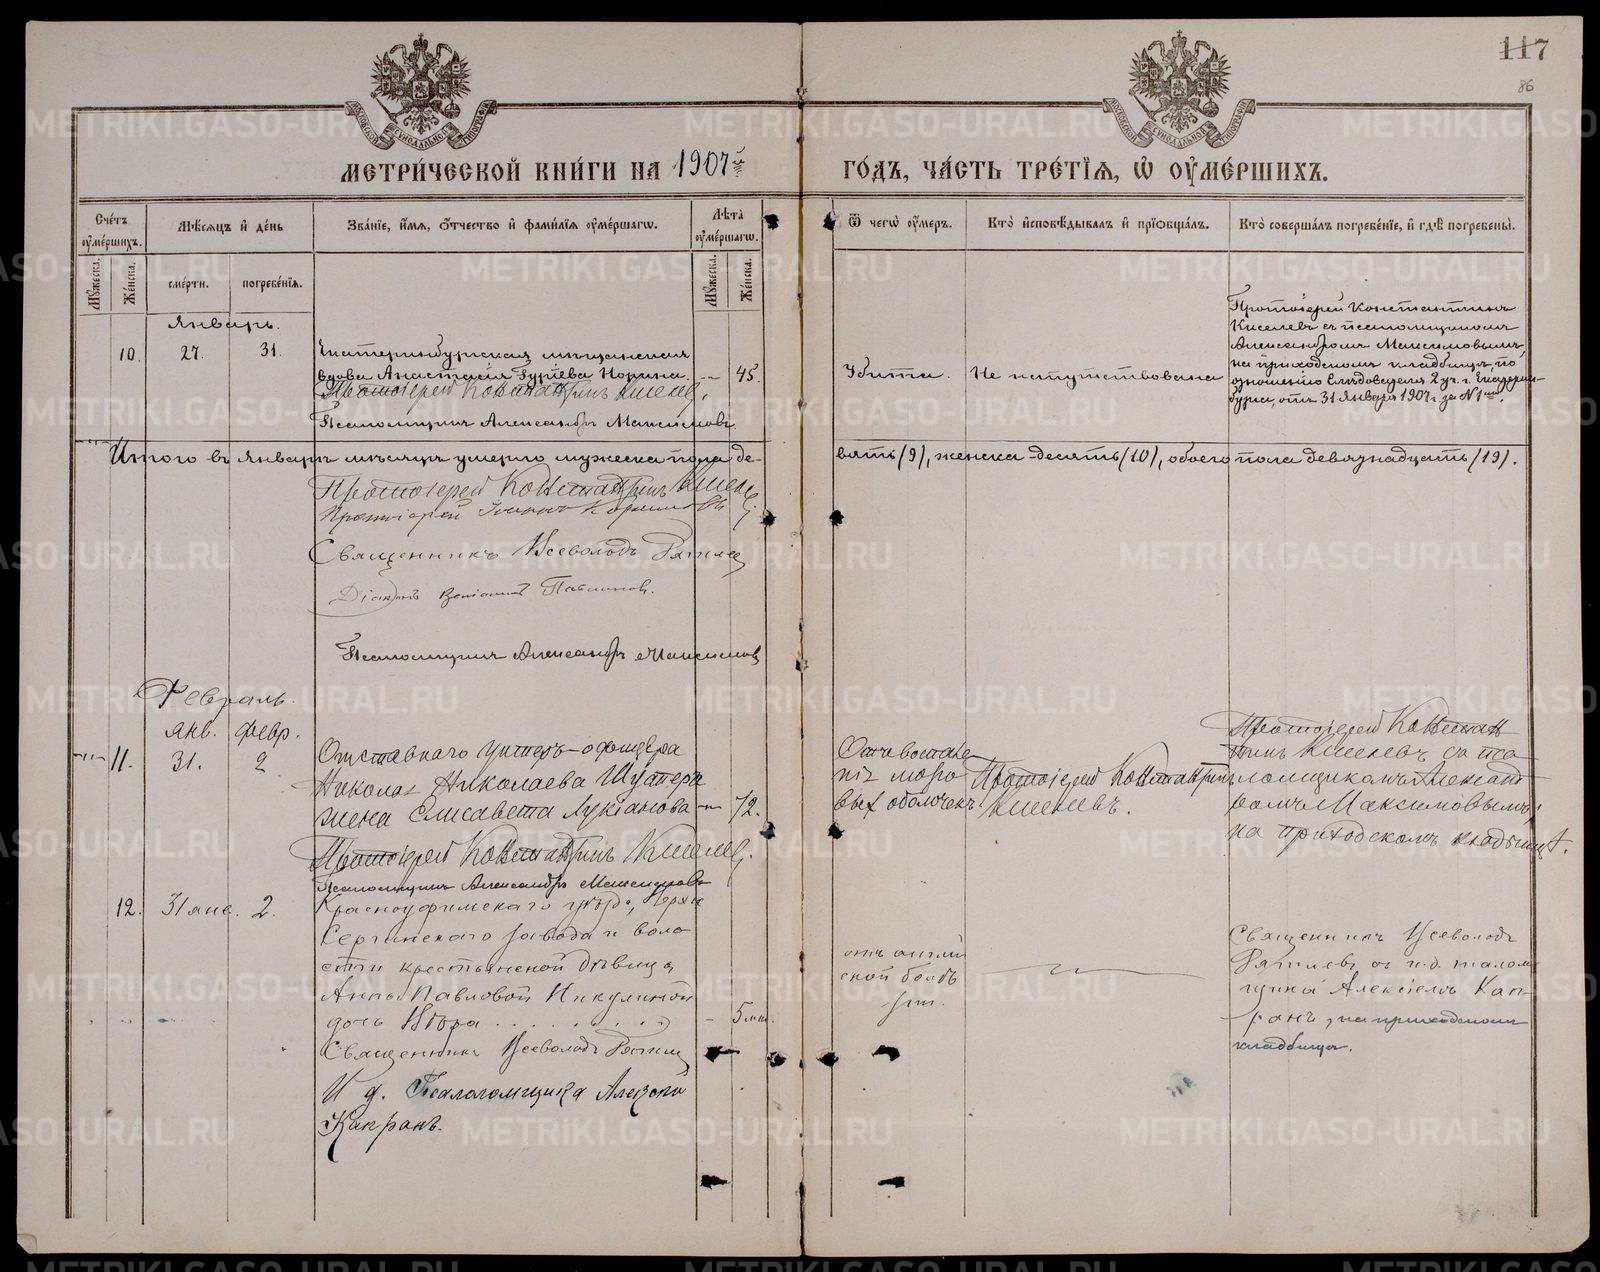 117
86
МЕТРИ́ЧЕСКОЙ КНИ́ГИ НА 1907й ГО́ДЪ, ЧА́СТЬ ТРЕ́ТІЯ, Ѿ ОУ҆МЕ́РШИХЪ.
Сче́тъ оумершихъ.
Мѣсяцъ и день
Званіе, имя, отчество и фамилія оумершагѡ.
Лѣта оумершагѡ.
Ѿ чегѡ оумеръ.
Кто исповѣдывалъ и пріобщалъ.
Кто совершалъ погребеніе, и гдѣ погребены.
Мужеска.
Женска.
смерти.
погребенія.
Мужеска.
Женска.
Январь.
10.
27.
31.
Екатеринбургская мѣщанская
вдова Анастасія Гуріева Норина.
45.
Протоіерей Константинъ Киселевъ.
Псаломщикъ Александръ Максимовъ
Убита.
Не напутствована
Протоіерей Константинъ
Киселевъ съ псаломщикомъ
Александромъ Максимовымъ,
на приходскомъ кладбищѣ, по
отношенію Слѣдователя 2 уч. г. Екатерин-
бурга, отъ 31 Января 1907 г. за №
Итого въ январѣ мѣсяцѣ умерло мужеска пола де-
вять (9), женска десять (10), обоего пола девятнадцать (19).
Протоіерей Константинъ Киселевъ
Протоіерей Іоаннъ
Священникъ Всеволодъ
Діаконъ Веніаминъ
Псаломщикъ Александръ Максимовъ
Февраль.
янв. февр.
11.
31.
2
Отставного унтеръ-офицера
Николая Николаева
жена Елисавета Лукіанова
72.
Протоіерей Константинъ Киселевъ.
Псаломщикъ Александръ Максимовъ
Отъ воспале
нія мозго
выхъ оболочекъ
Протоіерей Константинъ
Киселевъ.
Протоіерей Констан
тинъ Киселевъ съ пса
ломщикомъ Александ
ромъ Максимовымъ,
на приходскомъ кладбищѣ.
12.
31 янв.
2.
Красноуфимскаго уѣзда, Верхне
Сергинскаго завода и воло
сти крестьянской дѣвицы
Анны Павловой Никулиной
дочь Вѣра
5 мѣс.
Священникъ Всеволодъ
И д. Псаломщика Алексѣй
Капранъ.
отъ англій
ской болѣ
зни.
Священникъ Всеволодъ
съ и.д. псалом
щика Алексѣемъ Кап-
ранъ, на приходскомъ
кладбищѣ.
METRIKI.GASO-URAL.RU